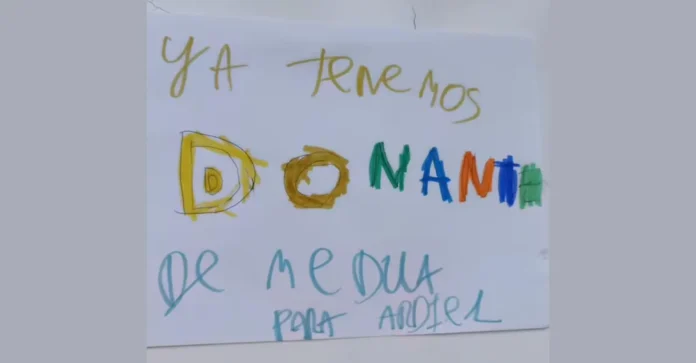 YA TENEMOS
DONANTE
DE MEDULA
PARA ARDIEL